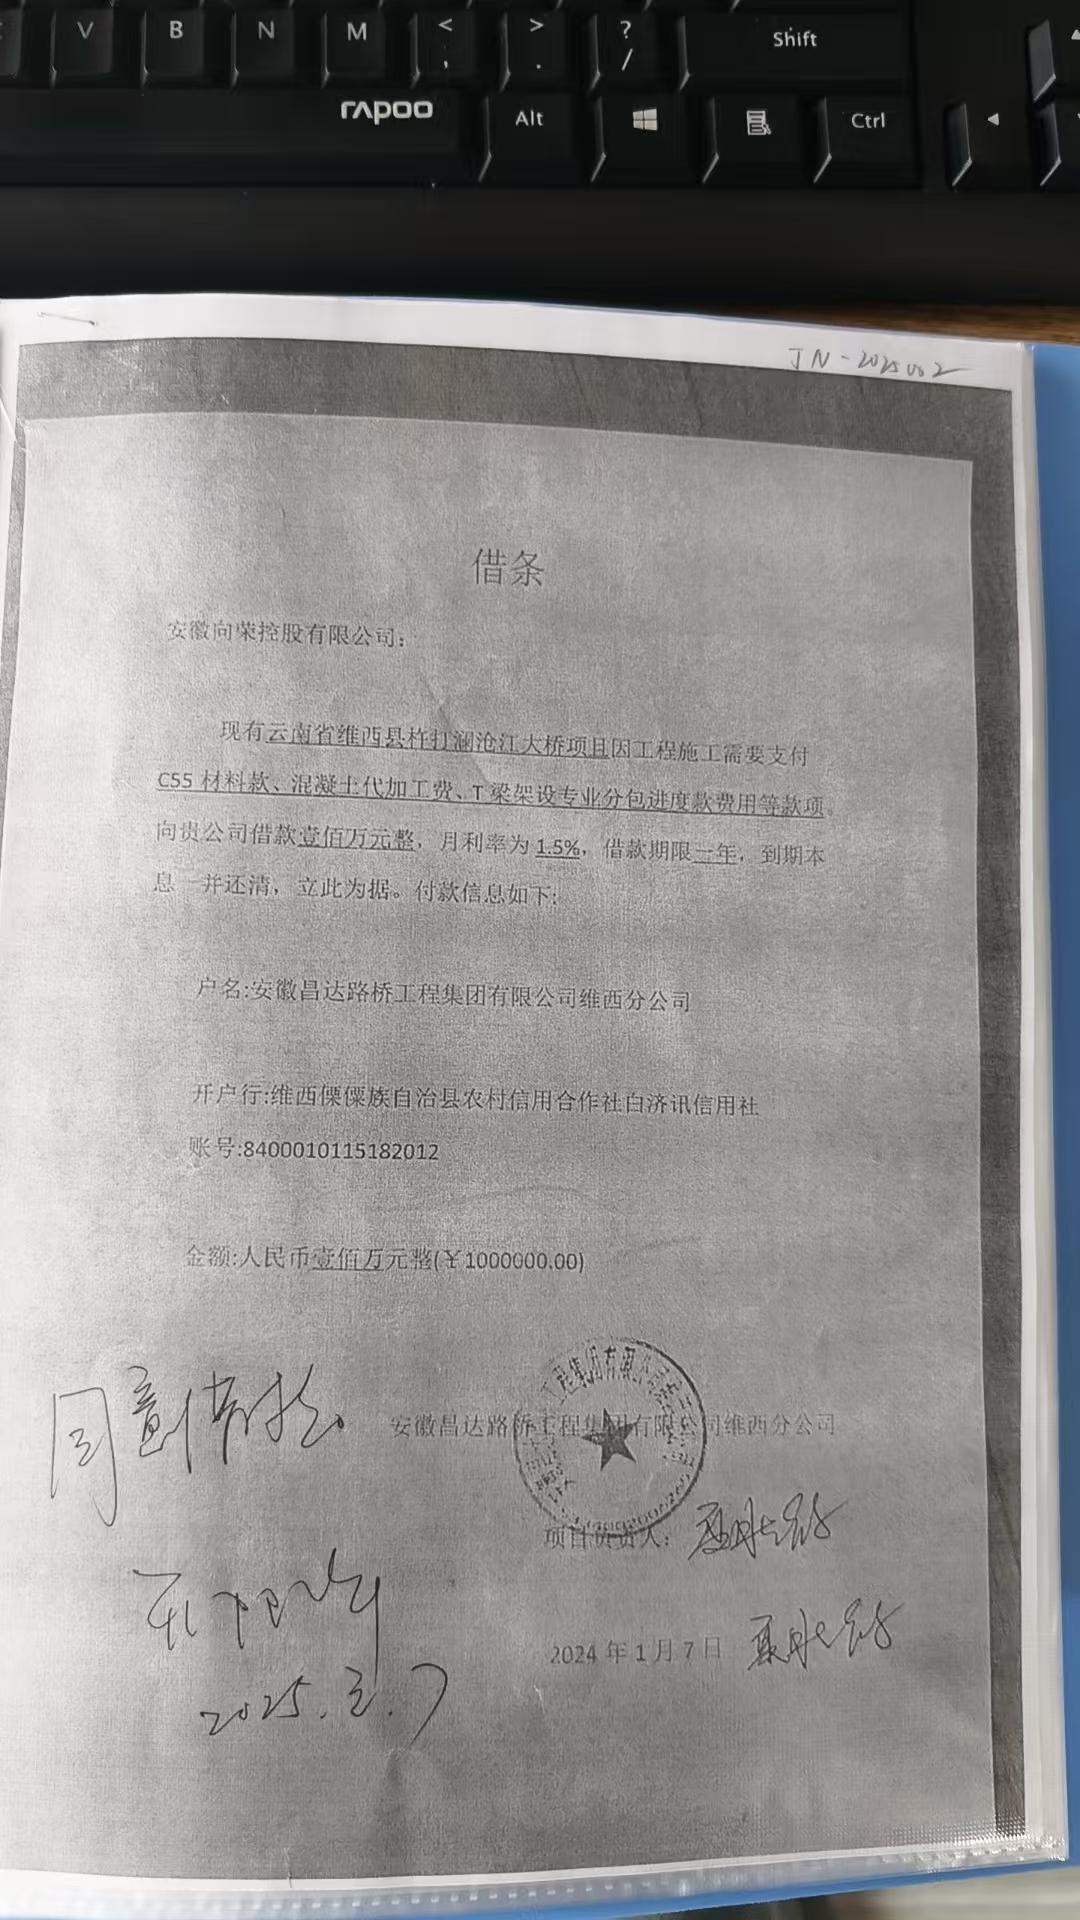 V B N M < , > . ? / Shift
rapoo Alt Ctrl
JN-2025002
借条
安徽向荣控股有限公司：
现有云南省维西县柞打澜沧江大桥项目因工程施工需要支付
C55 材料款、混凝土代加工费、T 梁架设专业分包进度款费用等款项。
向贵公司借款壹佰万元整，月利率为 1.5%，借款期限一年，到期本
息一并还清，立此为据。付款信息如下:
户名:安徽昌达路桥工程集团有限公司维西分公司
开户行:维西傈僳族自治县农村信用合作社白济讯信用社
账号:8400010115182012
金额:人民币壹佰万元整(￥1000000.00)
同意
工程集团有限公司
安徽昌达路桥工程集团有限公司维西分公司
项目负责人：
2024 年 1 月 7 日
2025.3.7